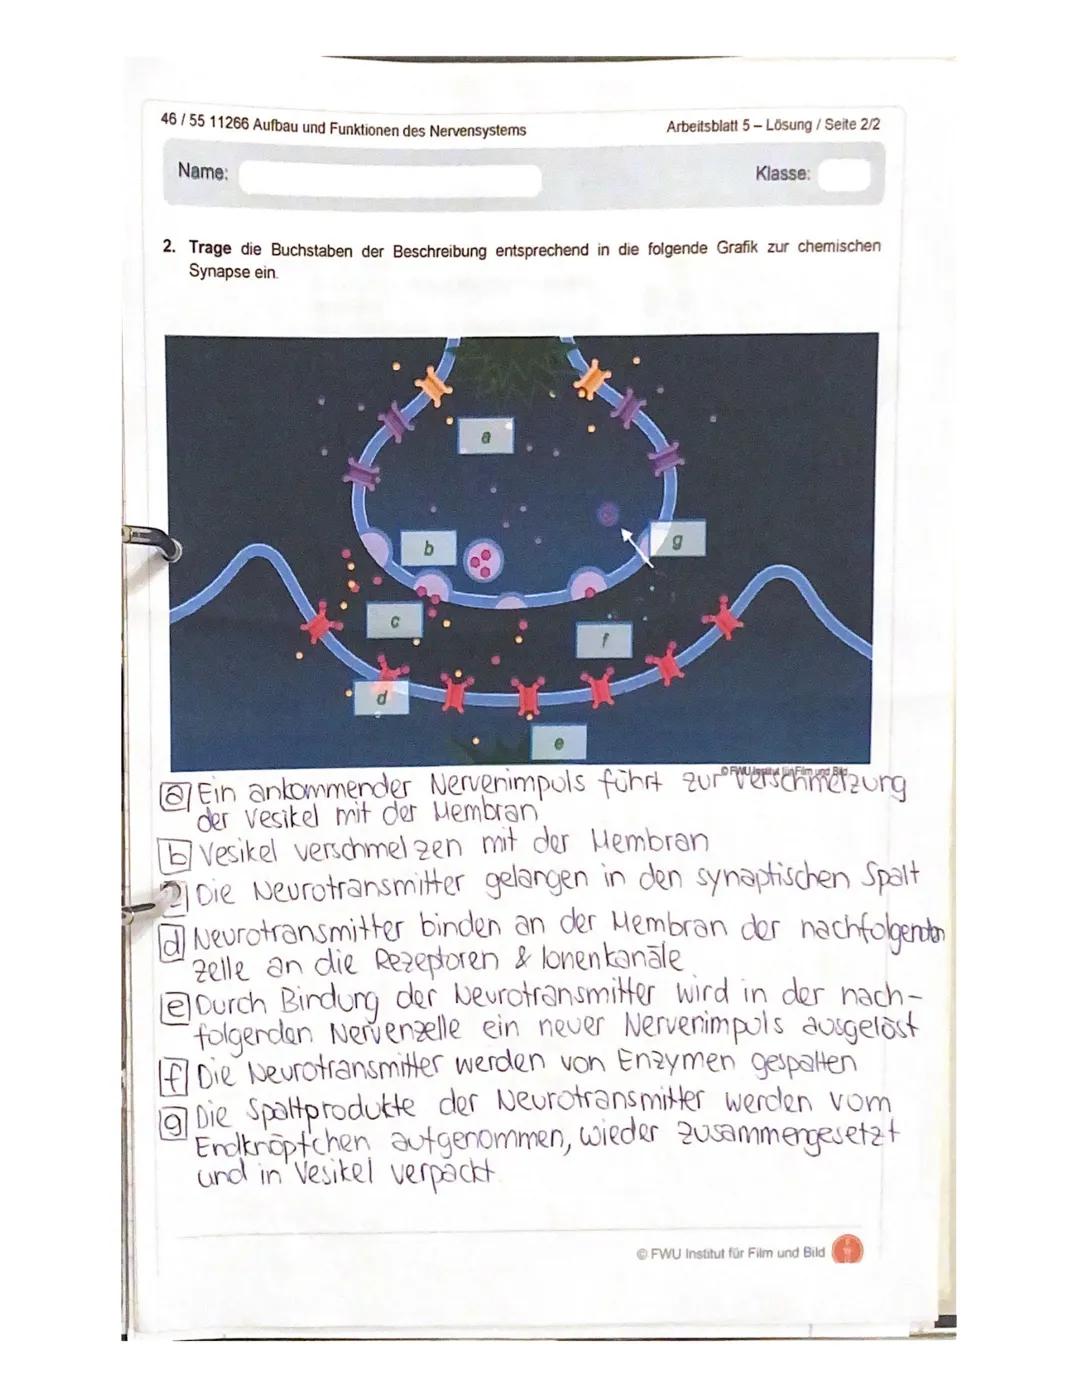 46 / 55 11266 Aufbau und Funktionen des Nervensystems
Arbeitsblatt 5 – Lösung / Seite 2/2
Name:
Klasse:
2. Trage die Buchstaben der Beschreibung entsprechend in die folgende Grafik zur chemischen
Synapse ein.
a
b
g
c
f
d
e
© FWU Institut für Film und Bild
a Ein ankommender Nervenimpuls führt zur Verschmelzung
der Vesikel mit der Membran
b Vesikel verschmelzen mit der Membran
Die Neurotransmitter gelangen in den synaptischen Spalt
d Neurotransmitter binden an der Membran der nachfolgenden
zelle an die Rezeptoren & Ionenkanäle
e Durch Bindung der Neurotransmitter wird in der nach-
folgenden Nervenzelle ein neuer Nervenimpuls ausgelöst
f Die Neurotransmitter werden von Enzymen gespalten
g Die Spaltprodukte der Neurotransmitter werden vom
Endknöpfchen aufgenommen, wieder zusammengesetzt
und in Vesikel verpackt
© FWU Institut für Film und Bild